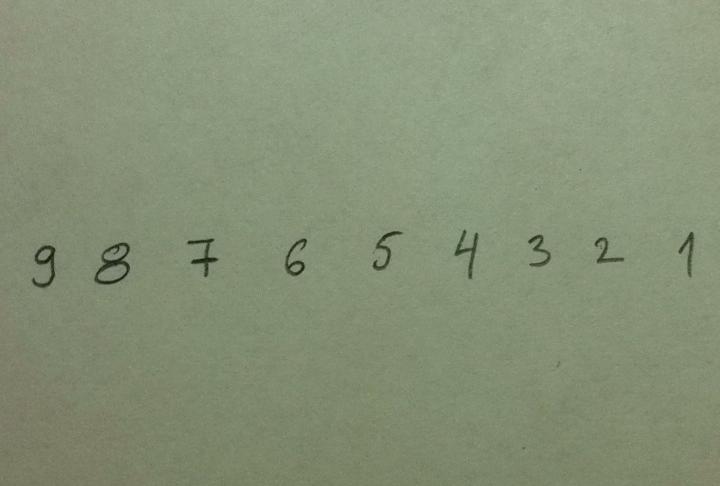 9 8 7 6 5 4 3 2 1